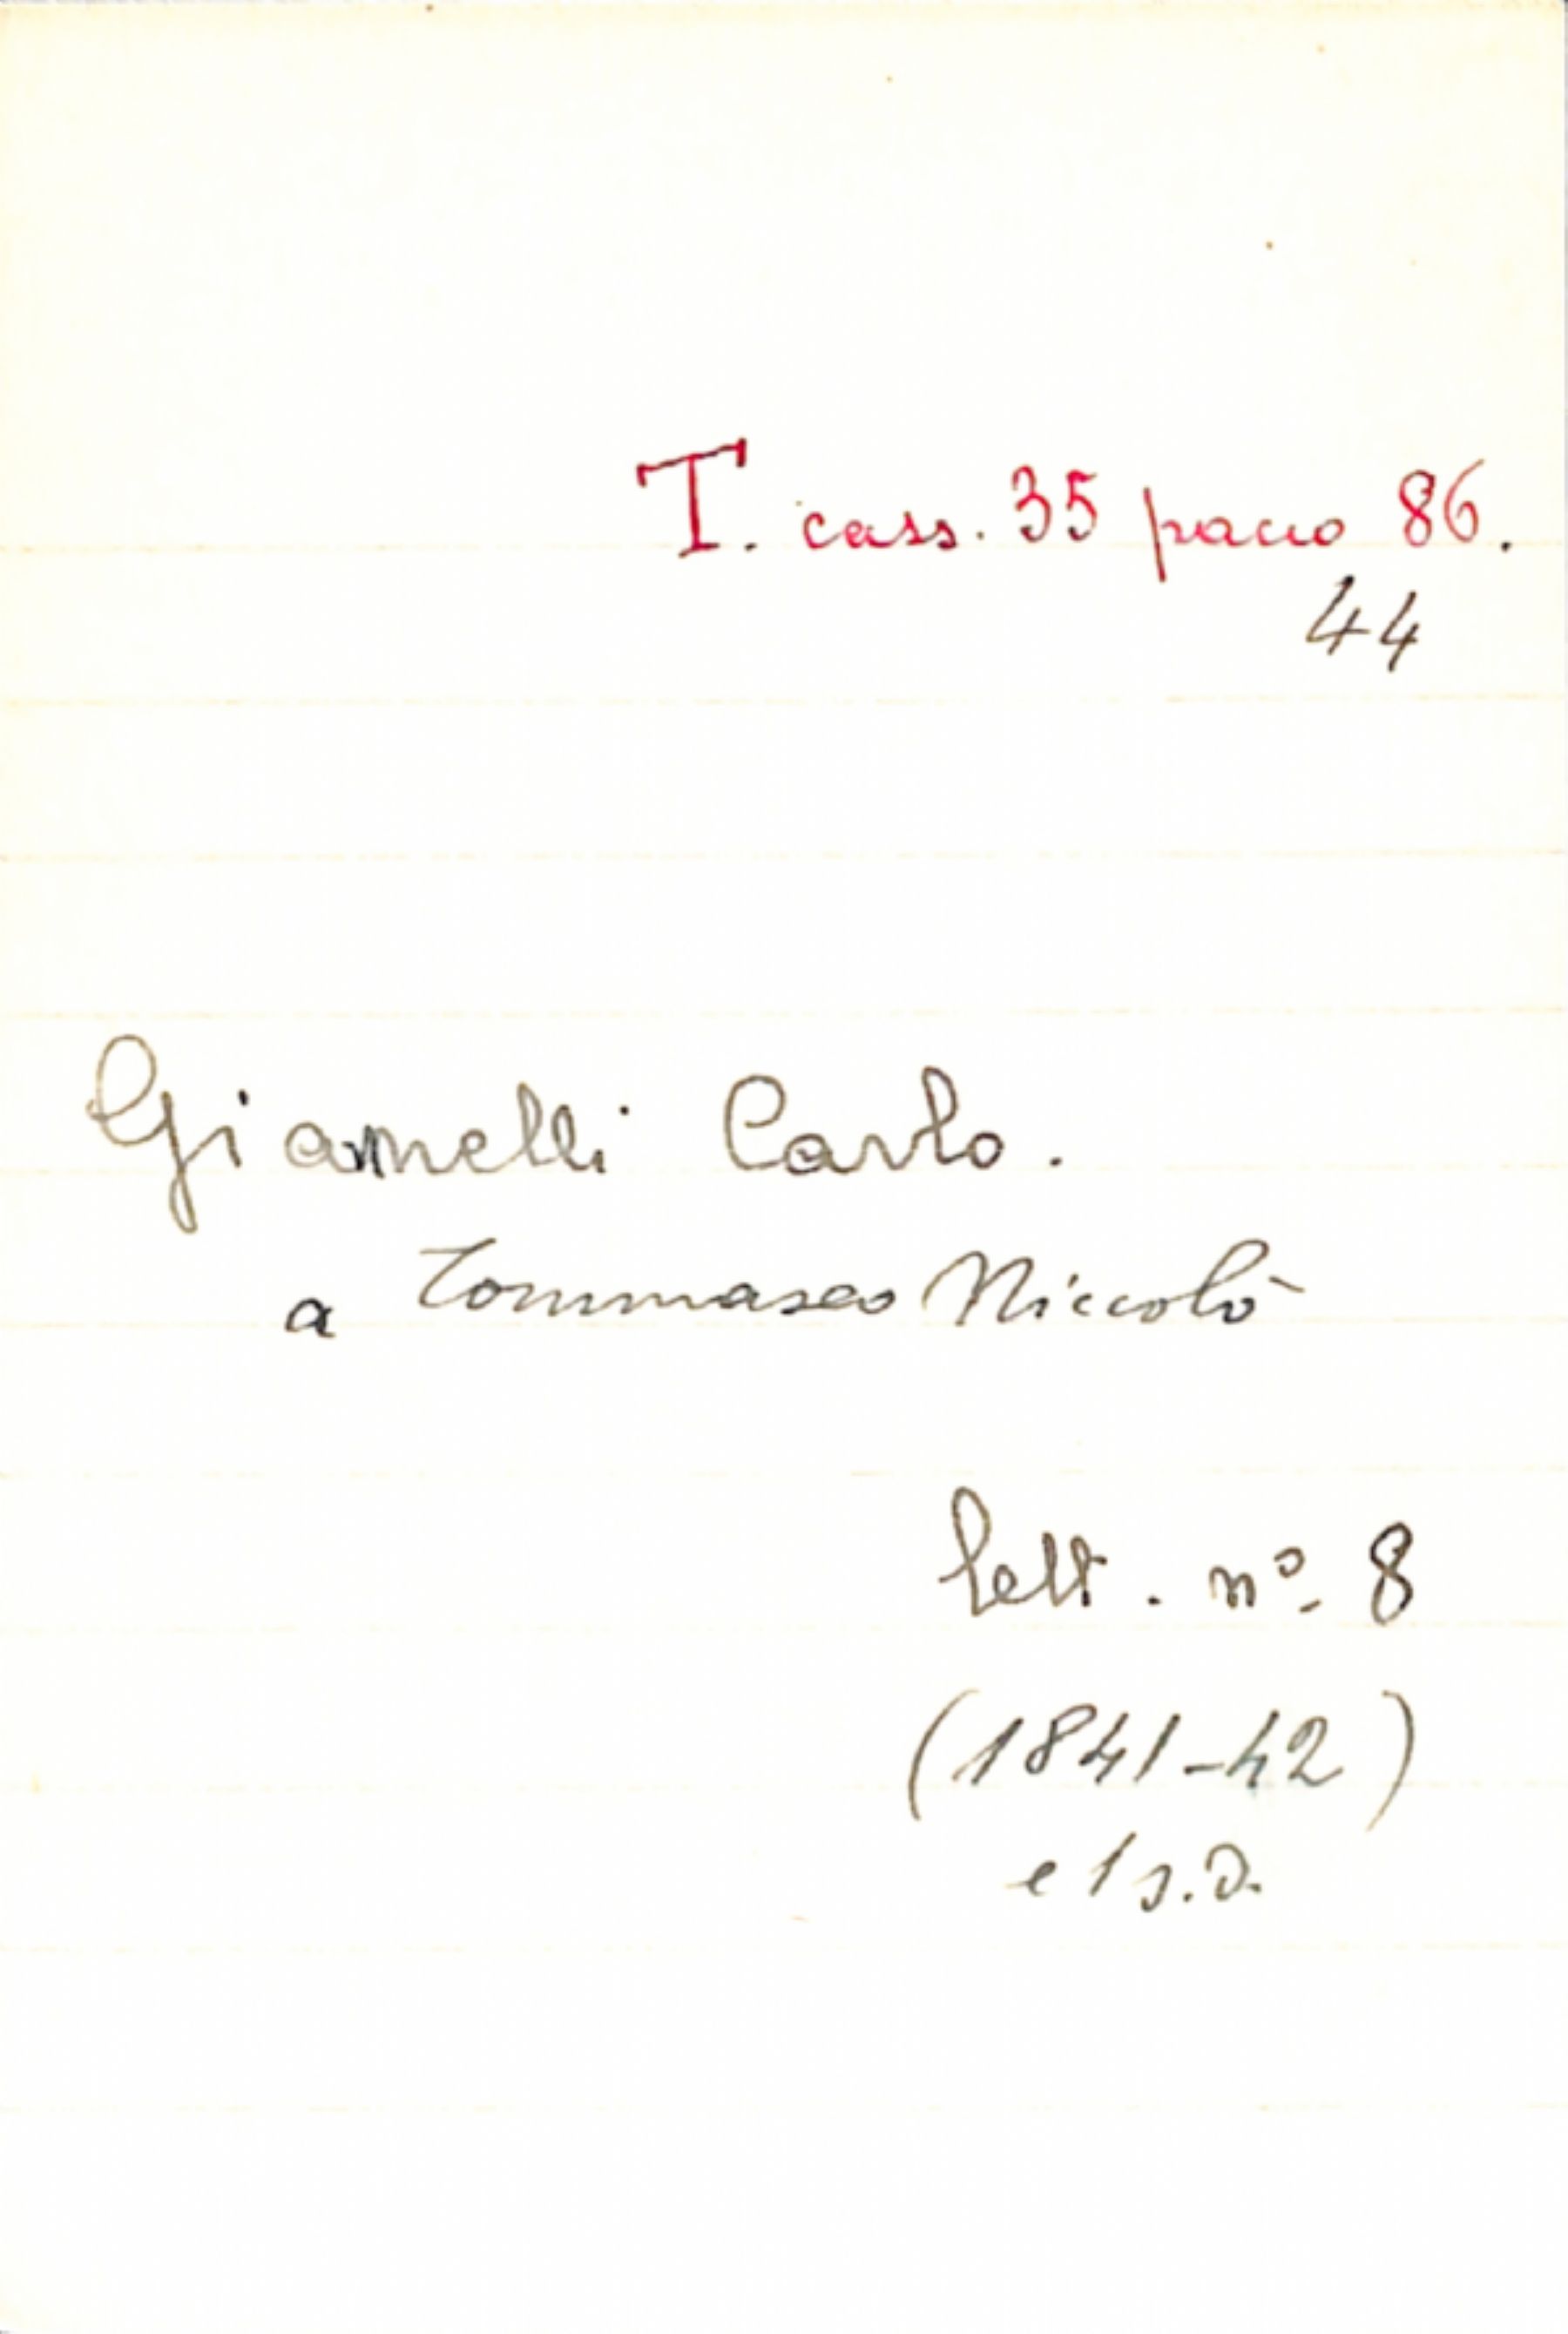 T. cass. 35 pacco 86.
44
Giannelli Carlo.
a Tommaseo Niccolò
lett. nº 8
(1841-42)
e 1 s.d.